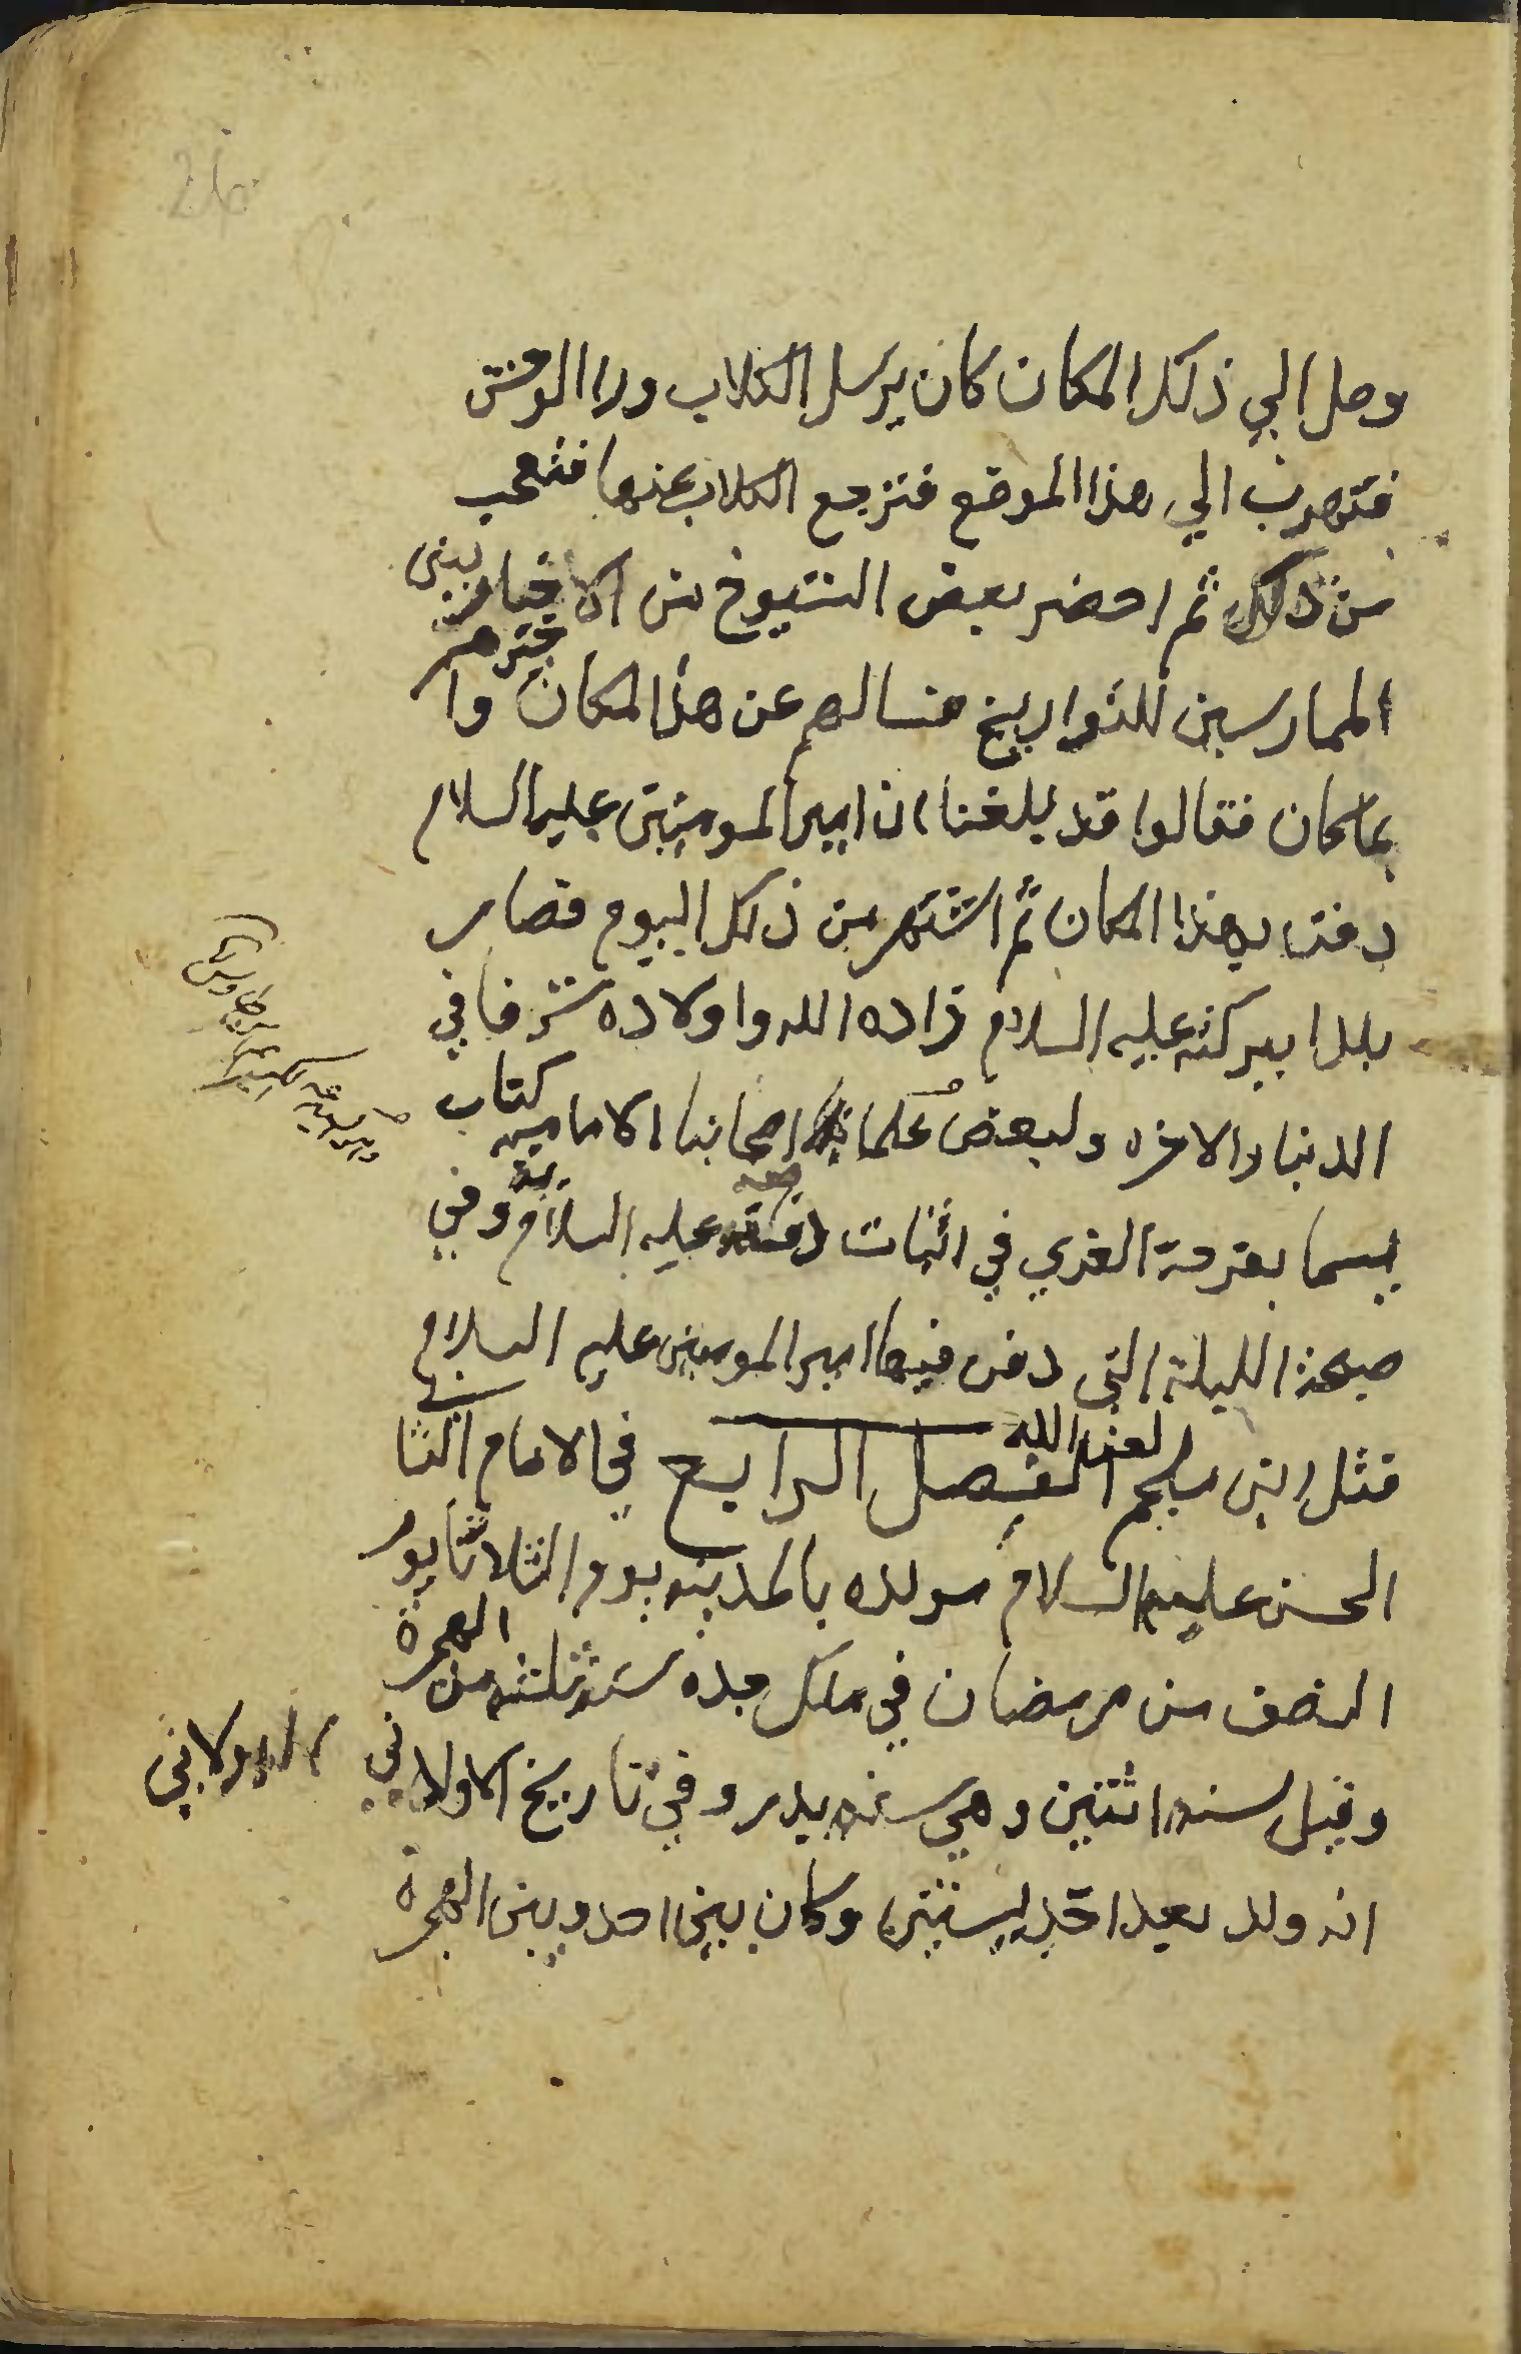 وصل الي ذلك المكان كان يرسل الكلاب ورا الوحش
فتهرب الي هذا الموقع فترجع الكلاب عنها فتعجب
من ذلك ثم احضر بعض الشيوخ من الاخيارين
الممارسين للتواريخ فسالهم عن هذا المكان واخبرهم
بما كان فقالوا قد بلغنا ان امير المومنين عليه السلام
دفن بهذا المكان ثم اشتهر من ذلك اليوم فصار
بلدا ببركته عليه السلام زاده الله واولاده شرفا في
الدنيا والاخره ولبعض علما اصحابنا الاماميه كتاب
يسما بفرحة الغري في اثبات عليه السلام وفي
صبحة الليلة التي دفن فيها امير المومنين عليه السلام
قتل ابن ملجم لعنه الله الفصل الرابع في الامام الثاني
الحسن عليه السلام مولده بالمدينه يوم الثلاثا يوم
النصف من رمضان في ملك جده سنة ثلثه من الهجرة
وقيل سنه اثنتين وهي سنه بدر وفي تاريخ الاولاني الدولابي
انه ولد بعد احد بسنتين وكان بين احد وبين الهجرة
26